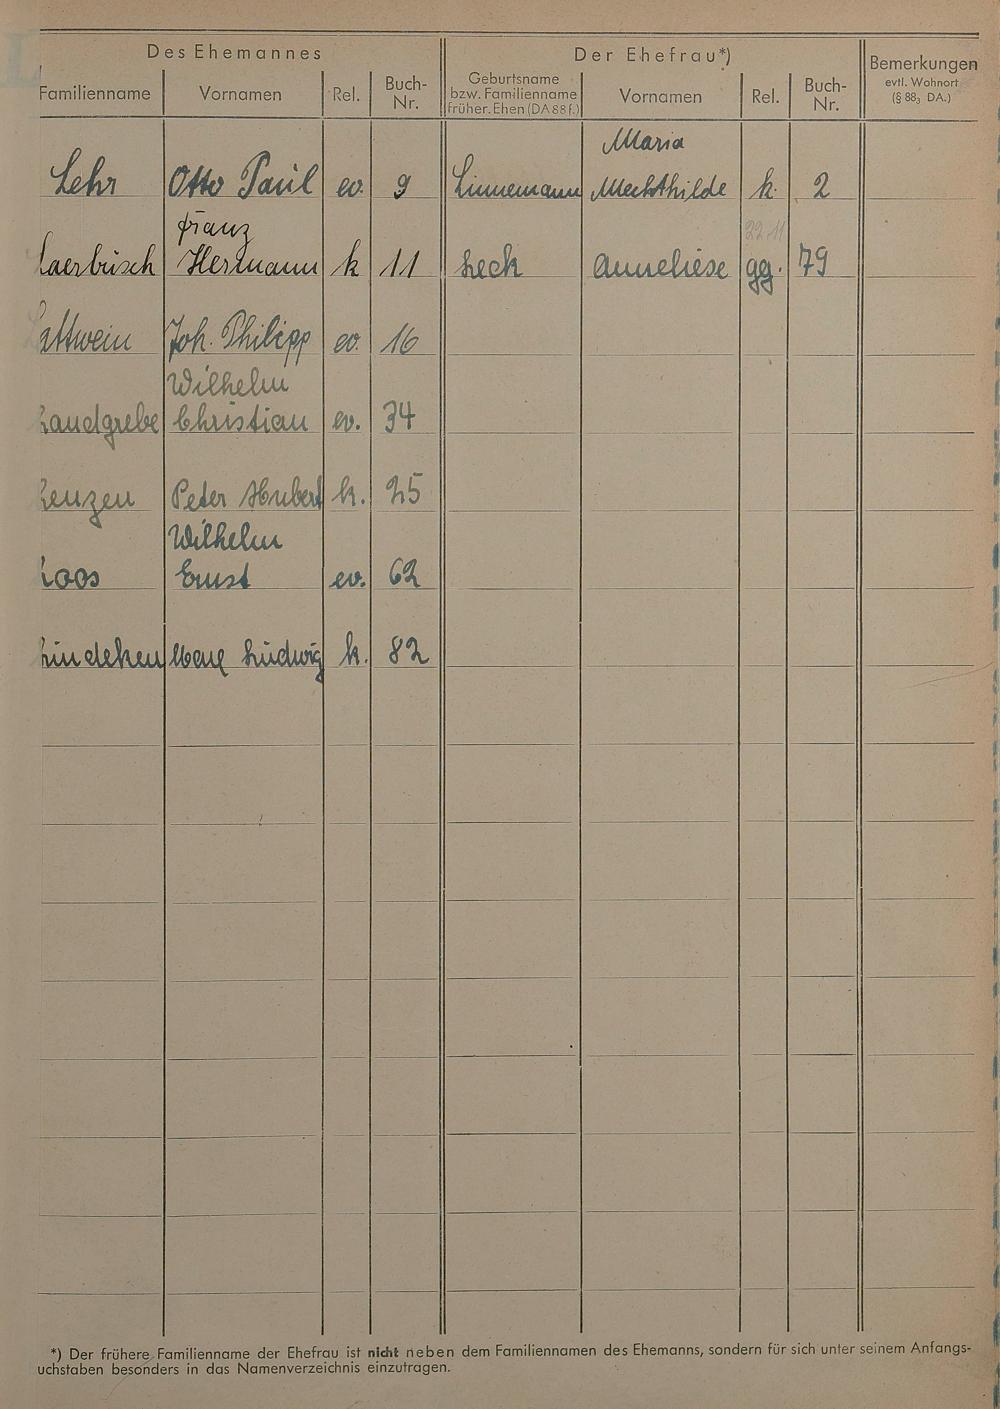 Des Ehemannes
Der Ehefrau*)
Bemerkungen
evtl. Wohnort
(§ 88₃ DA.)
Familienname
Vornamen
Rel.
Buch-
Nr.
Geburtsname
bzw. Familienname
früher. Ehen (DA 88 f.)
Vornamen
Rel.
Buch-
Nr.
Maria
Lehr Otto Paul ev. 9 Linnemann Mechthilde k. 2
Franz
22 11
Laerbusch Hermann k 11 Leck Anneliese gg. 79
Lattwein Joh. Philipp ev. 16
Wilhelm
Landgrebe Christian ev. 34
Lenzen Peter Hubert k. 25
Wilhelm
Loos Ernst ev. 62
Lindeken Ludwig k. 82
*) Der frühere Familienname der Ehefrau ist nicht neben dem Familiennamen des Ehemanns, sondern für sich unter seinem Anfangs-
uchstaben besonders in das Namenverzeichnis einzutragen.